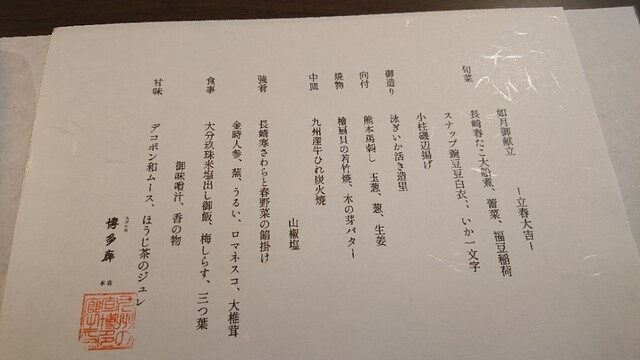 如月御献立 ー立春大吉ー
旬菜 長崎春たこ大船煮、蕾菜、福豆稲荷
スナップ豌豆豆白衣、いか一文字
小柱磯辺揚げ
御造り 泳ぎいか活き造里
向付 熊本馬刺し 玉葱、葱、生姜
焼物 檜扇貝の若竹焼、木の芽バター
中皿 九州産牛ひれ炭火焼
山椒塩
強肴 長崎寒さわらと春野菜の餡掛け
金時人参、蕪、うるい、ロマネスコ、大椎茸
食事 大分玖珠米塩出し御飯、梅しらす、三つ葉
御味噌汁、香の物
甘味 デコポン和ムース、ほうじ茶のジュレ
博多廊